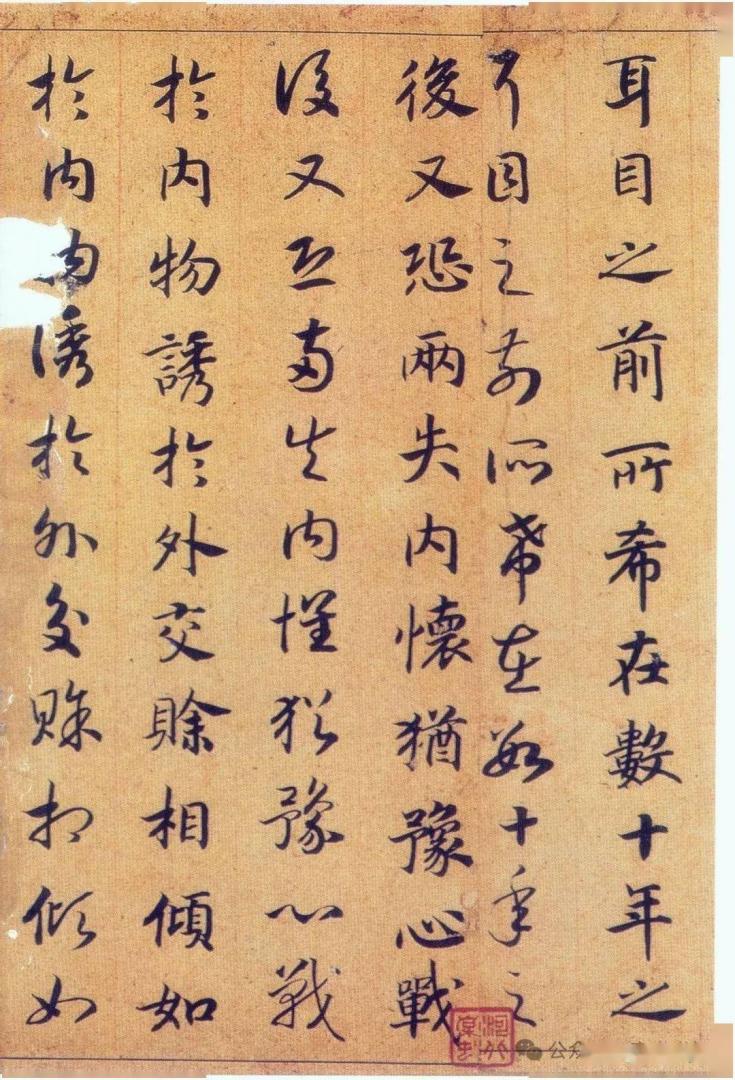 耳目之前所希在數十年之
耳目之前所希在數十年之
後又恐兩失內懷猶豫心戰
後又恐兩失內懷猶豫心戰
於內物誘於外交賒相傾如
於內物誘於外交賒相傾如
公众